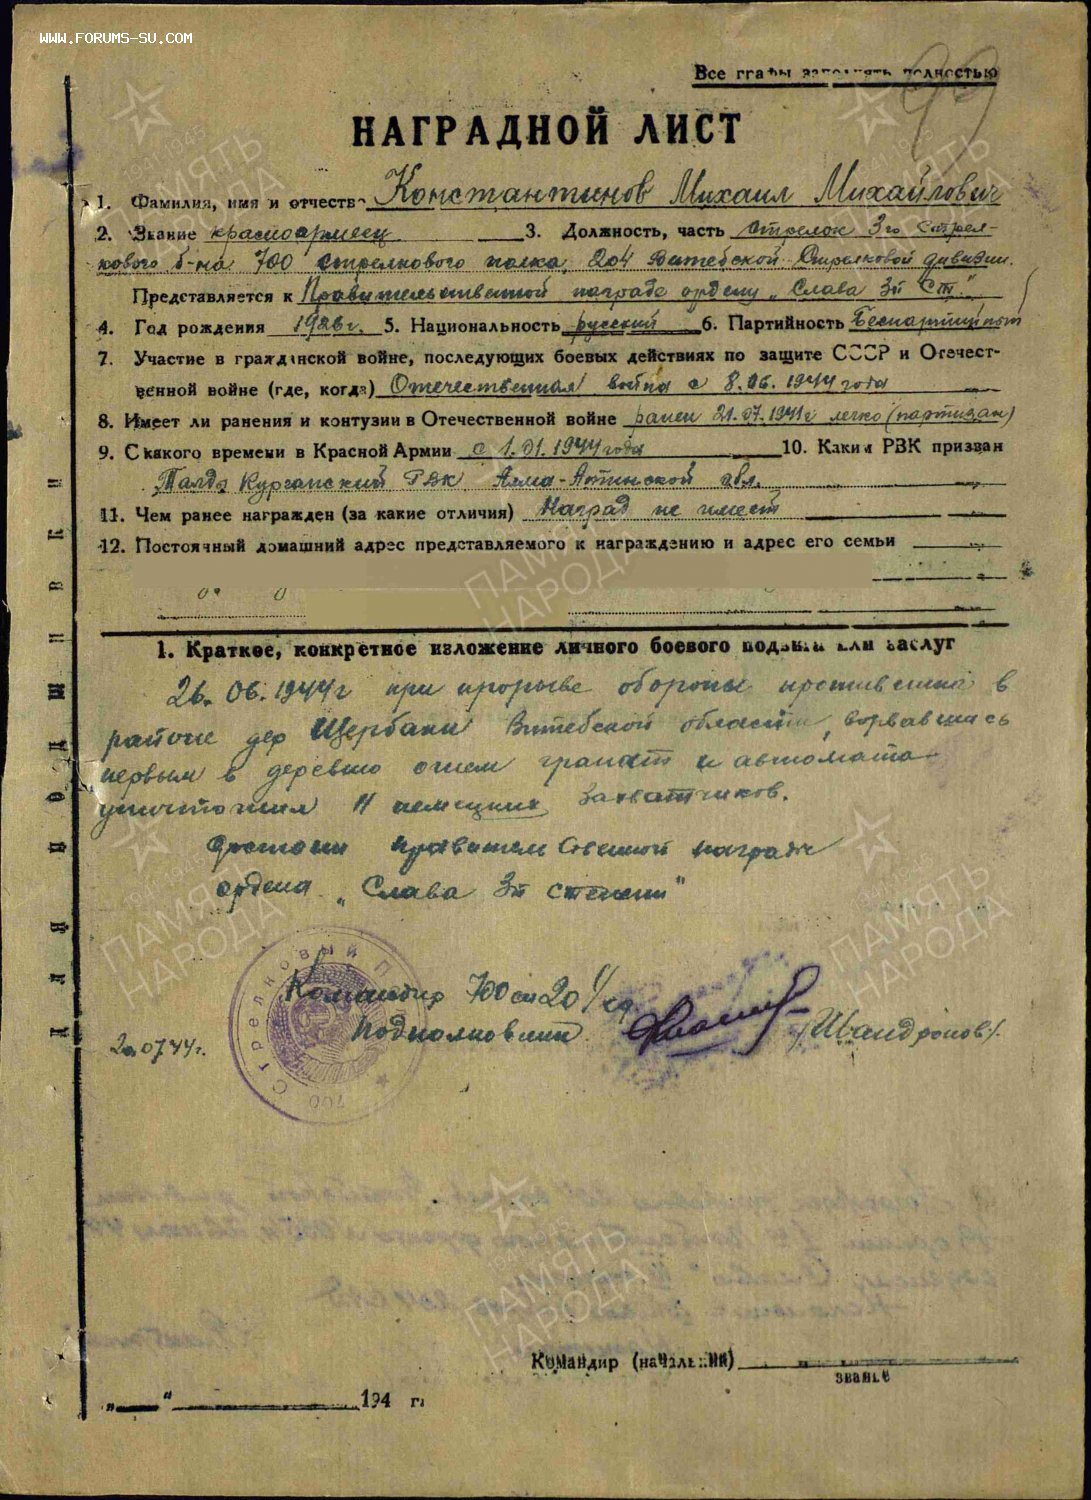 WWW.FORUMS-SU.COM
Все графы заполнять полностью
99
НАГРАДНОЙ ЛИСТ
1. Фамилия, имя и отчество Константинов Михаил Михайлович
2. Звание красноармеец 3. Должность, часть Стрелок 3го Стрел-
кового б-на 700 стрелкового полка, 204 Витебской Стрелковой дивизии.
Представляется к Правительственной награде ордену „Слава 3й Ст."
4. Год рождения 1926г. 5. Национальность русский 6. Партийность Беспартийный
7. Участие в гражданской войне, последующих боевых действиях по защите СССР и Отечест-
венной войне (где, когда) Отечественная война с 8.06.1944 года
8. Имеет ли ранения и контузии в Отечественной войне ранен 21.07.1941г легко (партизан)
9. С какого времени в Красной Армии с 1.01.1944 года 10. Каким РВК призван
Талды Курганский РВК Алма-Атинской обл.
11. Чем ранее награжден (за какие отличия) Наград не имеет
12. Постоянный домашний адрес представляемого к награждению и адрес его семьи
1. Краткое, конкретное изложение личного боевого подвига или заслуг
26.06.1944г при прорыве обороны противника в
районе дер Щербаки Витебской области, ворвавшись
первым в деревню огнем гранат и автомата
уничтожил 11 немецких захватчиков.
Достоин правительственной награде
ордена „Слава 3й степени"
Командир 700 сп 204 сд
Подполковник /Швандронов/.
2.0744г.
СТРЕЛКОВЫЙ П
700
Командир (начальник)
звание
„ " 194 г.
ПАМЯТЬ
НАРОДА
1941 1945
ПАМЯТЬ
НАРОДА
ПАМЯТЬ
НАРОДА
ПАМЯТЬ
НАРОДА
ПАМЯТЬ
НАРОДА
ПАМЯТЬ
НАРОДА